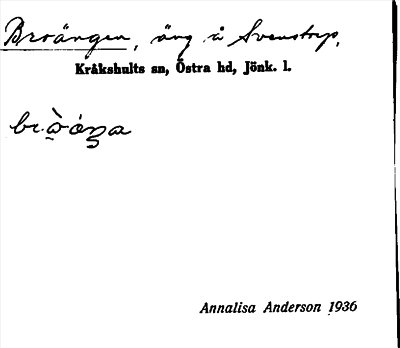 Broängen, äng å Svenstorp,
Kråkshults sn, Östra hd, Jönk. l.
Annalisa Anderson 1936